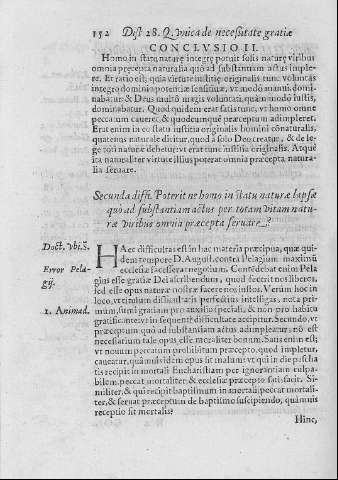 152 Dist. 28. Q. vnica de necessitate gratiæ
CONCLVSIO II.
Homo in statu naturę integrę potuit solis naturę viribus
omnia pręcepta naturalia quò ad substantiam actus imple-
re. Et ratio est, quia virtute iustitię originalis tunc voluntas
integro dominio potentiæ sensitiuæ, vt modò inanni, domi
nabatur: & Deus multò magis voluntati, quàm modò iustis,
dominabatur. Quod quidem erat satis tunc, vt homo omne
peccatum caueret, & quodcumque præceptum adimpleret.
Erat enim in eo statu iustitia originalis homini cōnaturalis,
quatenus naturale dicitur, quod à solo Deo creatur, & de le-
ge toti naturæ debetur: vt erat tunc iustitia originalis. Atque
ita naturaliter virtute illius poterat omnia præcepta natura-
lia seruare.
Secunda diffi. Poterit ne homo in statu naturæ lapsæ
quò ad substantiam actus per totam vitam natu-
ræ viribus omnia præcepta seruare?
Doct. vbi. S.
Error Pela-
gij.
1. Animad.
HAec difficultas est in hac materia præcipua, quæ qui-
dem tempore D. August. contra Pelagium maximū
ecclesiæ facesserat negotium. Contēdebat enim Pela
gius esse gratiæ Dei ascribendum, quod fecerit nos liberos,
id est opus naturæ nostræ facere nos iustos. Verùm hoc in
loco, vt titulum difficultatis perfectiùs intelligas, nota pri-
mùm, sumi gratiam pro auxilio speciali, & non pro habitu
gratificante: vt in sequenti difficultate accipitur. Secundò, vt
præceptum quò ad substantiam actus adimpleatur, nō est
necessarium tale opus esse moraliter bonum. Satis enim est;
vt nouum peccatum prohibitum præcepto, quod impletur,
caueatur, quamuis idem opus sit malum: vt qui in die pascha
tis recipit in mortali Eucharistiam per ignorantiam culpa-
bilem, peccat mortaliter: & ecclesiæ præcepto satisfacit. Si-
militer, & qui recipit baptismum in mortali, peccat mortali-
ter, & seruat præceptum de baptismo suscipiendo, quamuis
receptio sit mortalis:
Hinc,